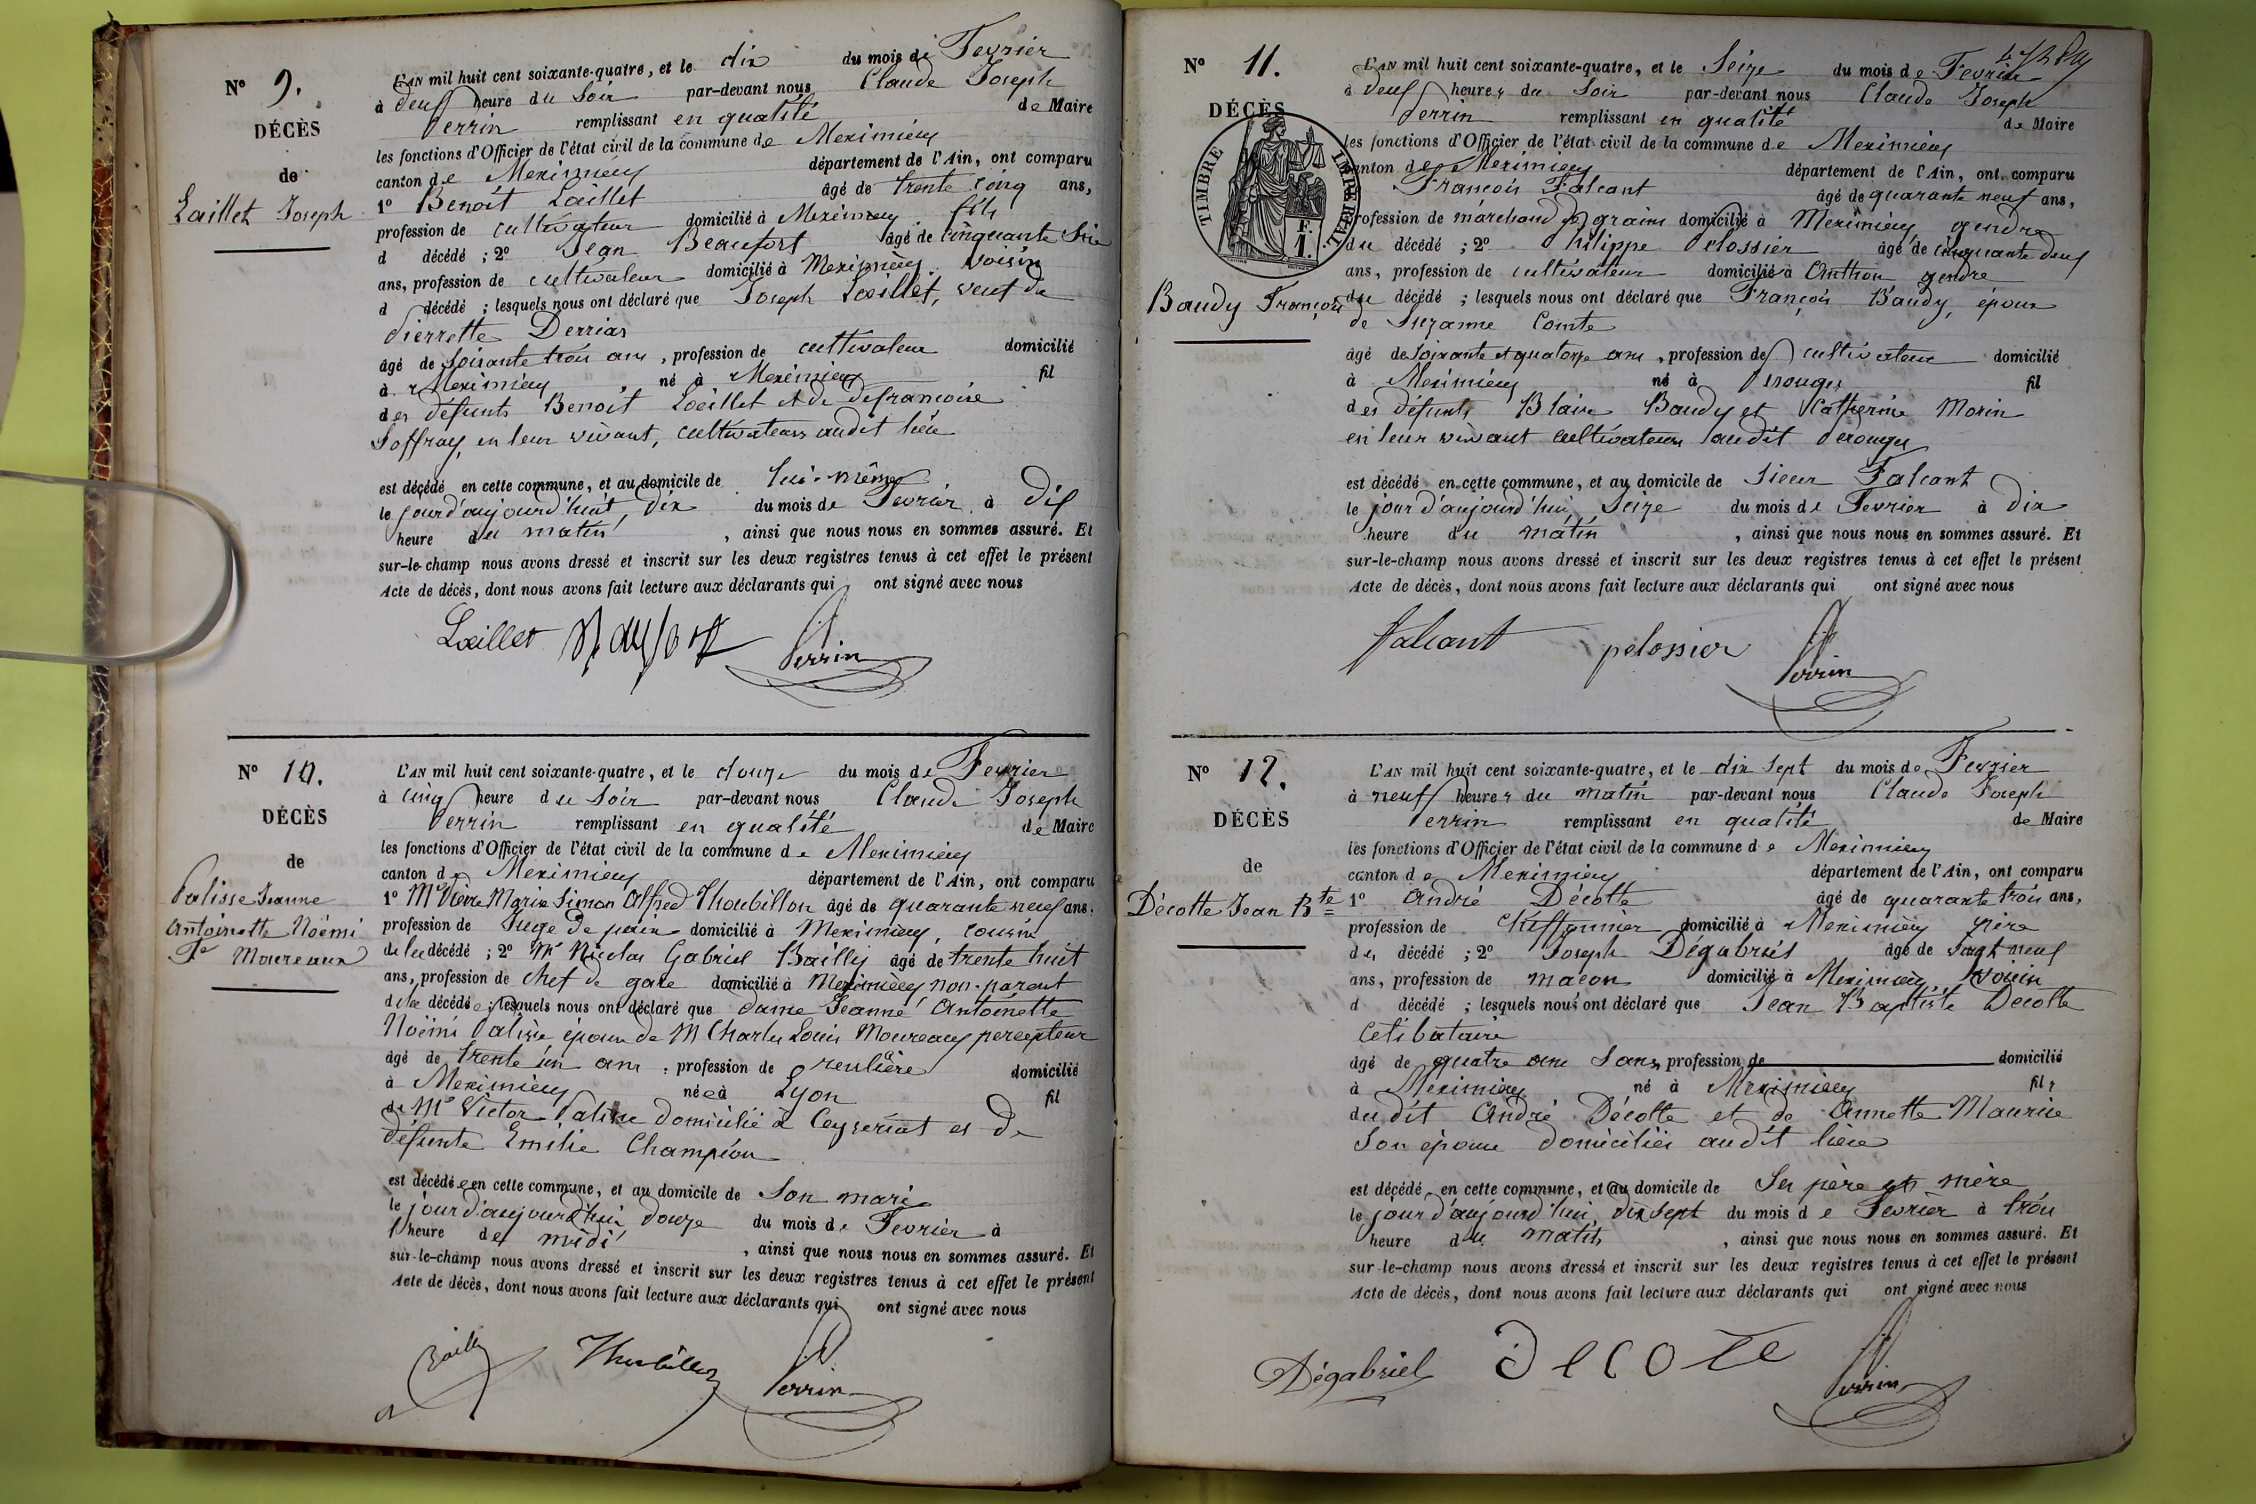 N° 9.
DÉCÈS
de
Laillet Joseph
L'AN mil huit cent soixante-quatre, et le dix du mois de Fevrier
à deux heure du Soir par-devant nous Claude Joseph
Perrin remplissant en qualité de Maire
les fonctions d'Officier de l'état civil de la commune de Meximieux
canton de Meximieux département de l'Ain, ont comparu
1° Benoit Laillet âgé de trente cinq ans,
profession de cultivateur domicilié à Meximieux fils
d décédé ; 2° Jean Beaufort âgé de cinquante
ans, profession de cultivateur domicilié à Meximieux voisin
d décédé ; lesquels nous ont déclaré que Joseph Laillet, veuf de
Pierrette Perrias
âgé de soixante trois ans, profession de cultivateur domicilié
à Meximieux, né à Meximieux fil
des défunts Benoit Laillet et de defrancoise
Joffray, en leur vivant, cultivateurs audit lieu
est décédé en cette commune, et au domicile de lui-même
le jour d'aujourd'huit, dix du mois de Fevrier à dix
heure du matin, ainsi que nous nous en sommes assuré. Et
sur-le-champ nous avons dressé et inscrit sur les deux registres tenus à cet effet le présent
Acte de décès, dont nous avons fait lecture aux déclarants qui ont signé avec nous
Laillet Perrin
N° 10.
DÉCÈS
de
Palisse Jeanne
Antoinette Noëmi
Fe Moureaux
L'AN mil huit cent soixante-quatre, et le douze du mois de Fevrier
à cinq heure du Soir par-devant nous Claude Joseph
Perrin remplissant en qualité de Maire
les fonctions d'Officier de l'état civil de la commune de Meximieux
canton de Meximieux département de l'Ain, ont comparu
1° Mr Pierre Marie Simon Alfred Thoubillon âgé de quarante neuf ans,
profession de Juge de paix domicilié à Meximieux, cousin
de la décédé ; 2° Mr Nicolas Gabriel Bailly âgé de trente huit
ans, profession de chef de gare domicilié à Meximieux non-parent
de la décédée ; lesquels nous ont déclaré que dame Jeanne Antoinette
Noëmi Palisse épouse de M Charles Louis Moureaux percepteur
âgé de trente un ans, profession de rentière domicilié
à Meximieux née à Lyon fil
de Mr Victor Palisse domicilié à Ceyseriat et de
défunte Emilie Champion
est décédée en cette commune, et au domicile de Son mari
le jour d'aujourd'hui douze du mois de Fevrier à
l'heure de midi, ainsi que nous nous en sommes assuré. Et
sur-le-champ nous avons dressé et inscrit sur les deux registres tenus à cet effet le présent
Acte de décès, dont nous avons fait lecture aux déclarants qui ont signé avec nous
Bailly Thoubillon Perrin
N° 11.
DÉCÈS
TIMBRE IMPERIAL
F.
1.
Baudy François
L'AN mil huit cent soixante-quatre, et le Seize du mois de Fevrier
à deux heures du Soir par-devant nous Claude Joseph
Perrin remplissant en qualité de Maire
les fonctions d'Officier de l'état civil de la commune de Meximieux
canton de Meximieux département de l'Ain, ont comparu
François Falcant âgé de quarante neuf ans,
profession de marchand de grains domicilié à Meximieux gendre
du décédé ; 2° Philippe Pelossier âgé de cinquante deux
ans, profession de cultivateur domicilié à Anthon gendre
du décédé ; lesquels nous ont déclaré que François Baudy, époux
de Suzanne Comte
âgé de soixante et quatorze ans, profession de cultivateur domicilié
à Meximieux né à Perouges fil
des défunts Blaise Baudy et Catherine Morin
en leur vivant cultivateurs audit Perouges
est décédé en cette commune, et au domicile de Sieur Falcant
le jour d'aujourd'hui Seize du mois de Fevrier à dix
heure du matin, ainsi que nous nous en sommes assuré. Et
sur-le-champ nous avons dressé et inscrit sur les deux registres tenus à cet effet le présent
Acte de décès, dont nous avons fait lecture aux déclarants qui ont signé avec nous
falcant pelossier Perrin
N° 12.
DÉCÈS
de
Décotte Jean Bte
L'AN mil huit cent soixante-quatre, et le dix sept du mois de Fevrier
à neuf heures du matin par-devant nous Claude Joseph
Perrin remplissant en qualité de Maire
les fonctions d'Officier de l'état civil de la commune de Meximieux
canton de Meximieux département de l'Ain, ont comparu
1° André Décotte âgé de quarante trois ans,
profession de chiffonnier domicilié à Meximieux père
du décédé ; 2° Joseph Dégabriel âgé de vingt neuf
ans, profession de maçon domicilié à Meximieux voisin
d décédé ; lesquels nous ont déclaré que Jean Baptiste Decotte
Celibataire
âgé de quatre ans Sans profession de domicilié
à Meximieux né à Meximieux fils
dudit André Décotte et de Annette Maurice
Son épouse domiciliés audit lieu
est décédé en cette commune, et au domicile de Ses père et mère
le jour d'aujourd'hui dix sept du mois de Fevrier à trois
heure du matin, ainsi que nous nous en sommes assuré. Et
sur-le-champ nous avons dressé et inscrit sur les deux registres tenus à cet effet le présent
Acte de décès, dont nous avons fait lecture aux déclarants qui ont signé avec nous
Dégabriel Decote Perrin